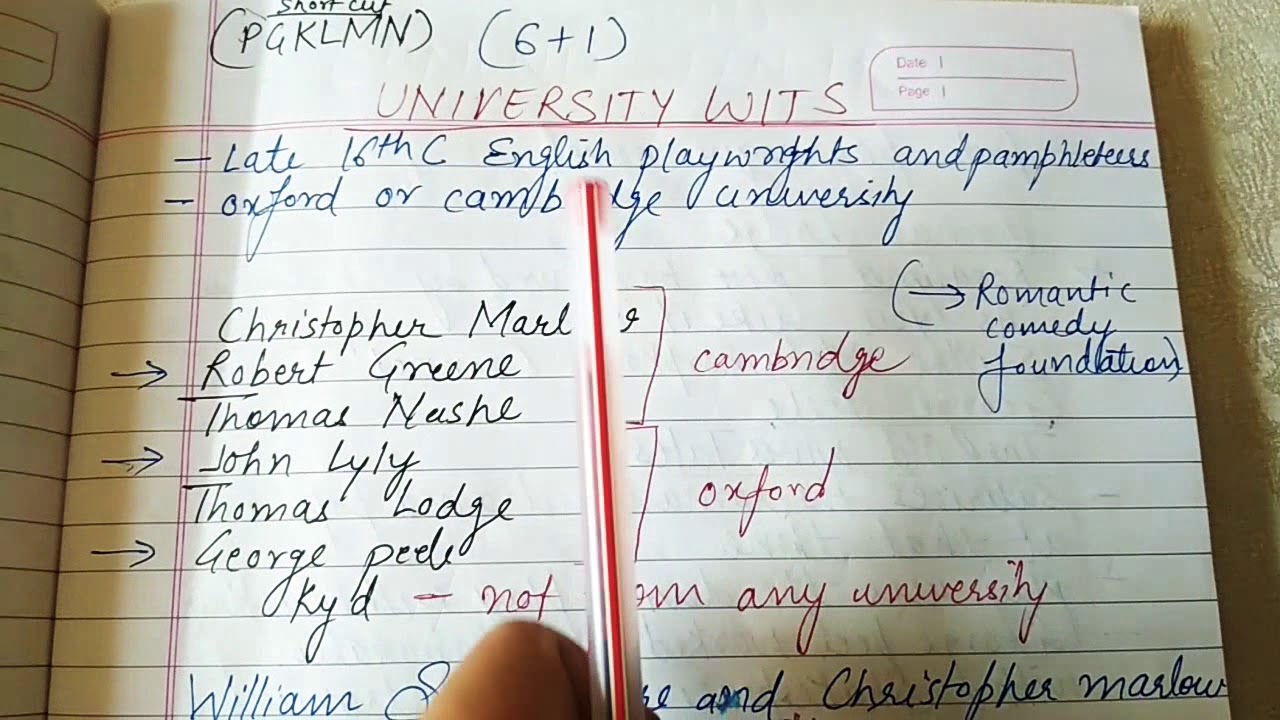 Short cut
(PGKLMN) (6+1)
Date
Page
UNIVERSITY WITS
- Late 16th C English playwrights and pamphleteers
- oxford or university
Christopher
→ Robert Greene
Thomas Nashe
cambridge
(→ Romantic
comedy
foundation)
→ John Lyly
Thomas Lodge
oxford
→ George peele
Kyd - not any university
William and Christopher marlow